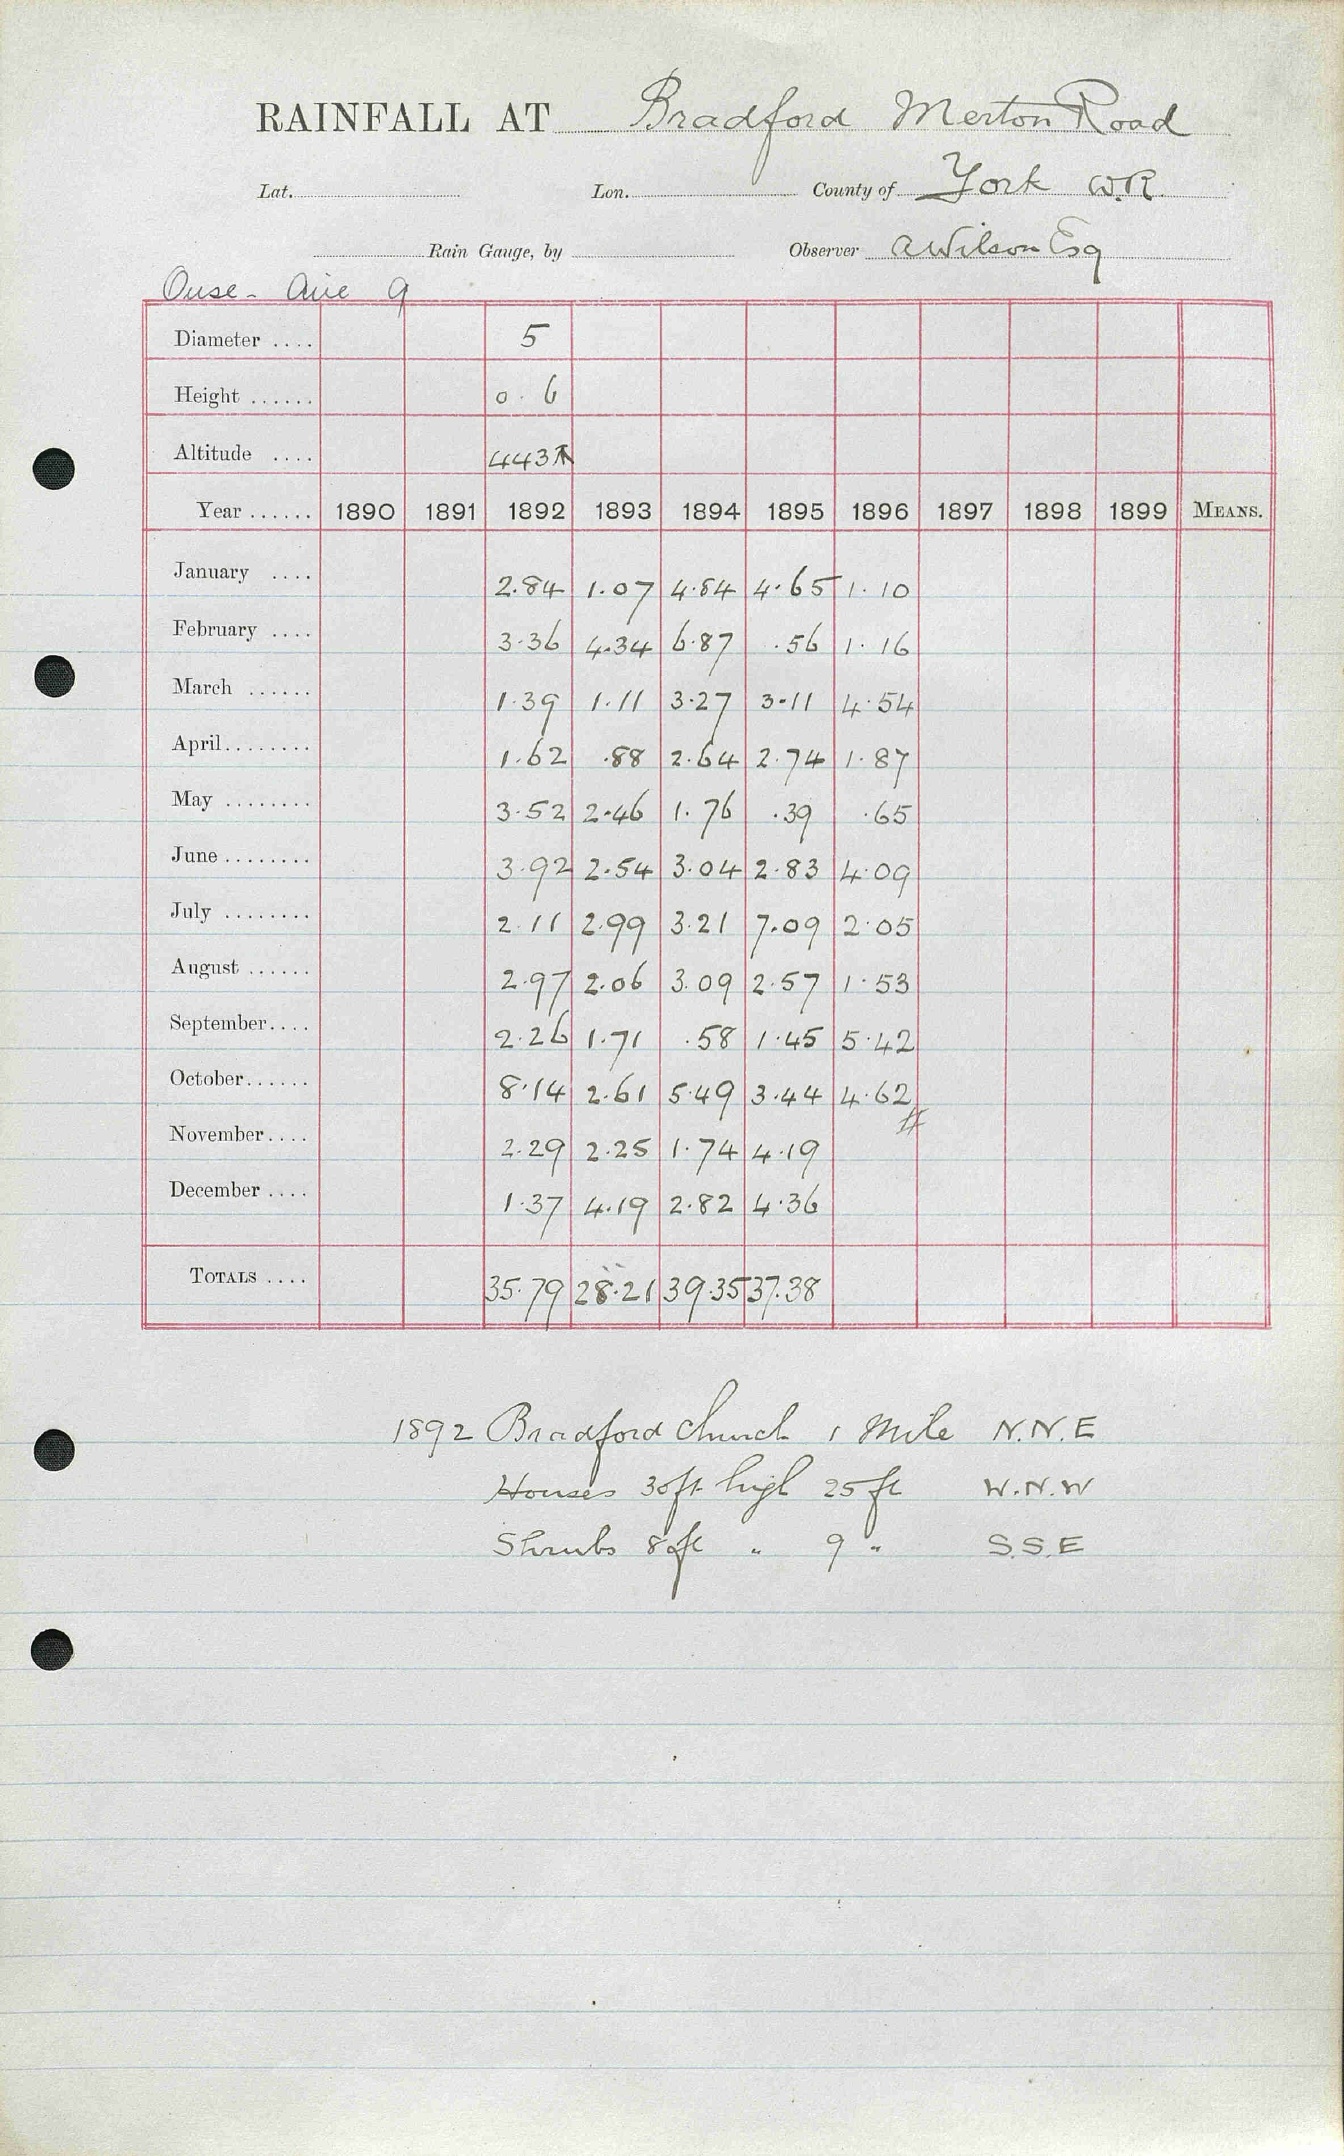 RAINFALL AT Bradford Merton Road
Lat. Lon. County of York W.R.
Rain Gauge, by Observer A Wilson Esq
Ouse - Aire 9
Diameter .... 5
Height ...... 0. 6
Altitude .... 443
Year ...... 1890 1891 1892 1893 1894 1895 1896 1897 1898 1899 MEANS.
January .... 2.84 1.07 4.84 4.65 1.10
February .... 3.36 4.34 6.87 .56 1.16
March ...... 1.39 1.11 3.27 3.11 4.54
April........ 1.62 .88 2.64 2.74 1.87
May ........ 3.52 2.46 1.76 .39 .65
June ........ 3.92 2.54 3.04 2.83 4.09
July ........ 2.11 2.99 3.21 7.09 2.05
August ...... 2.97 2.06 3.09 2.57 1.53
September.... 2.26 1.71 .58 1.45 5.42
October...... 8.14 2.61 5.49 3.44 4.62
November.... 2.29 2.25 1.74 4.19
December .... 1.37 4.19 2.82 4.36
TOTALS .... 35.79 28.21 39.35 37.38
1892 Bradford Church 1 Mile N.N.E
Houses 30ft high 25 ft W.N.W
Shrubs 8 ft " 9 " S.S.E